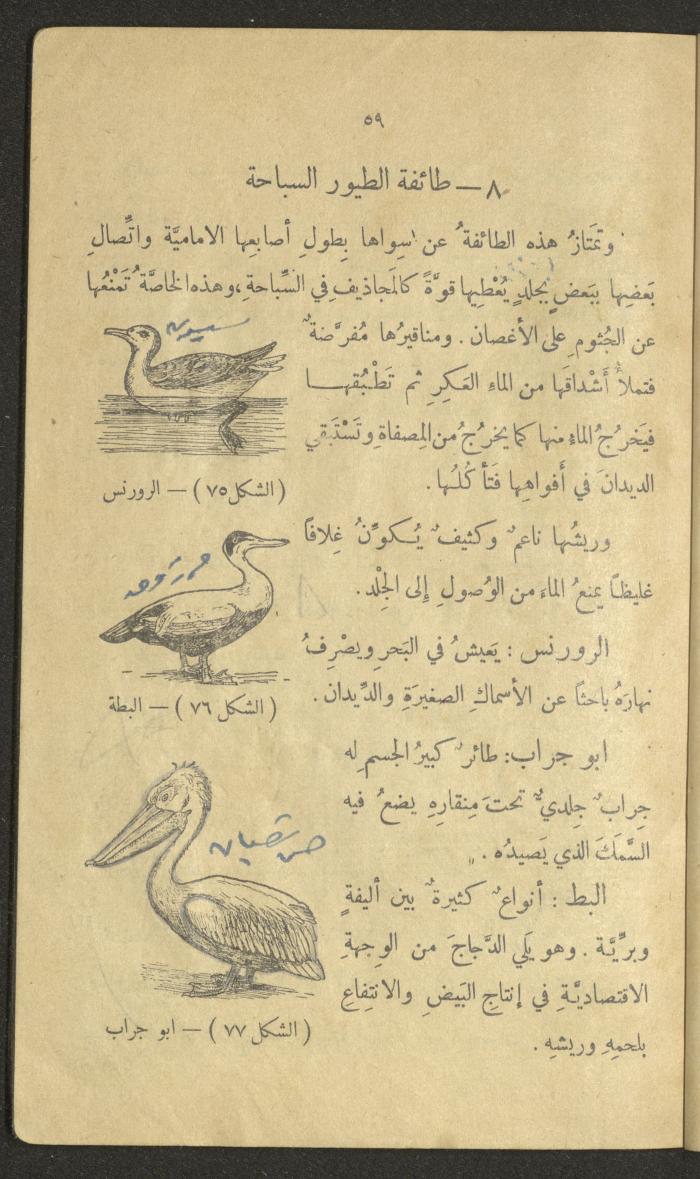 ٥٩
٨ — طائفة الطيور السباحة
وتمتَازُ هذه الطائفةُ عن سِواها بِطولِ أصابعِها الاماميَّة واتِّصالِ
بَعضِها ببَعضٍ بجلدٍ يُعْطِيها قوَّةً كالمَجاذيفِ في السِّباحةِ، وهذه الخاصَّةُ تَمْنْعُها
عن الجُثومِ على الأغصان . ومناقيرُها مُفرَّضةٌ
فتملأُ أَشْداقَها من الماءِ العَكِرِ ثم تَطْبُقهـا
فيَخرُجُ الماءُ منها كما يخرُجُ من المِصفاةِ وتَسْتَبقي
الديدانَ في أَفواهِها فَتَأكُلُها .
(الشكل ٧٥) — الرورنس
وريشُها ناعمٌ وكثيفٌ يُكوِّنُ غِلافًا
غليظًا يمنعُ الماءَ من الوُصولِ إِلى الجِلْد .
الرورنس : يَعيشُ في البَحرِ ويصْرِفُ
نهارَهُ باحثًا عن الأسماكِ الصغيرَةِ والدِّيدان .
(الشكل ٧٦) — البطة
ابو جراب : طائرٌ كبيرُ الجسمِ له
جِرابٌ جِلديٌّ تحتَ مِنقارِهِ يضعُ فيه
السَّمَكَ الذي يَصيدُه .
البط : أنواعٌ كثيرةٌ بين أليفةٍ
وبرِّيَّة . وهو يَلي الدَّجاجَ من الوِجهةِ
الاقتصاديَّةِ في إنتاجِ البَيضِ والانتِفاعِ
بلحمِهِ وريشِهِ .
(الشكل ٧٧) — ابو جراب